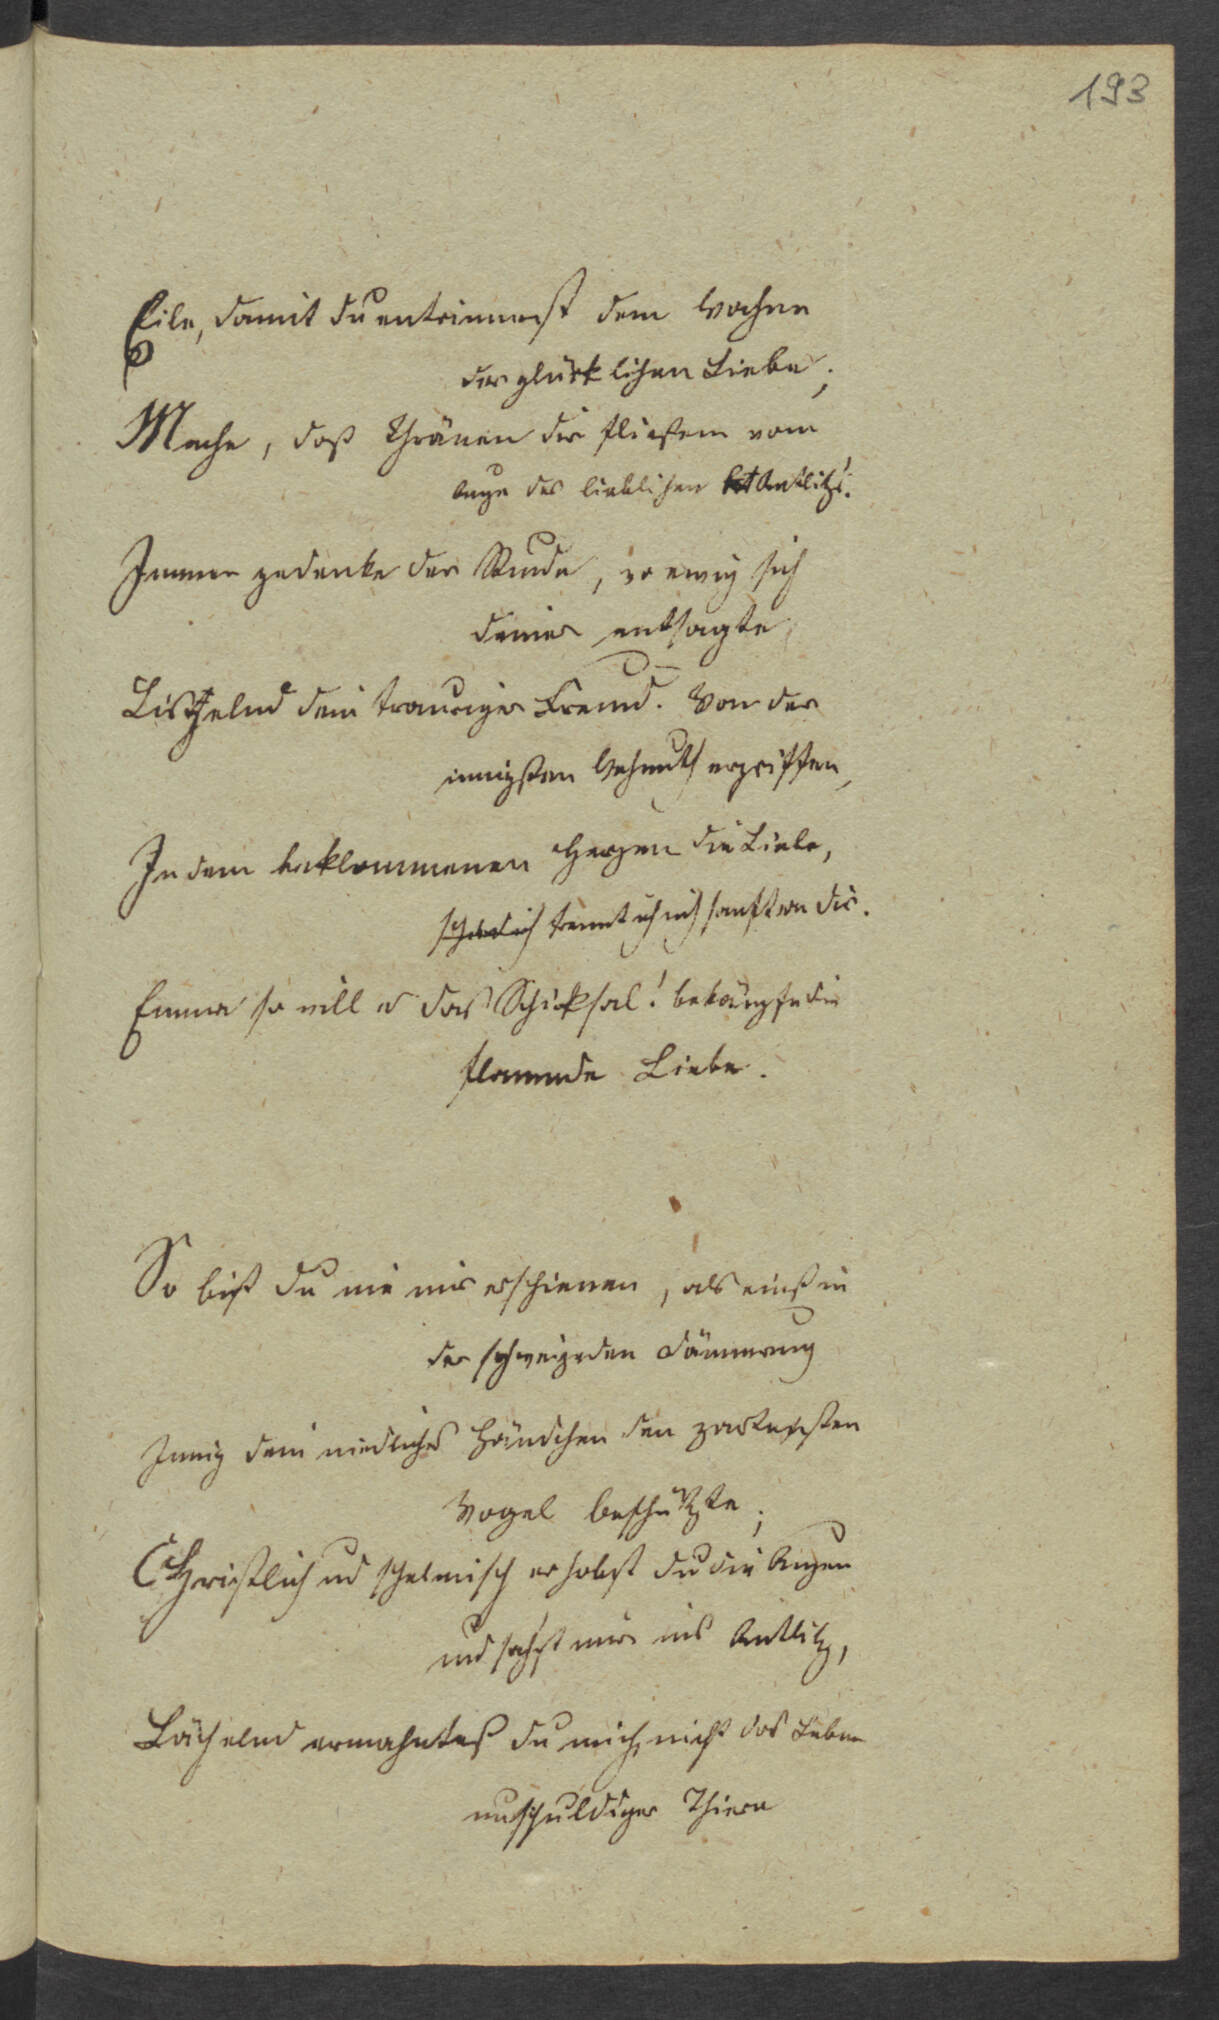 193
Eile, damit du entrinnest dem Wahne
der glücklichen Liebe;
Mache, daß Thränen dir fließen vom
Auge des lieblichen Antlitz's.
Immer gedenke der Stunde, wo ewig sich
deiner entsagte
Listelnd dein trauriger Freund. Von der
innigsten Wehmuth ergriffen,
In dem beklommenen Herzen die Liebe,
trennt ich mich sanft von dir.
Emma so will es das Schicksal! bekämpfe die
flammde Liebe.
So bist du nie mir erschienen, als einst in
der schweigenden Dämmrung
Innig dein niedliches Händchen den zartesten
Vogel beschützte;
Christlich und schelmisch erhobst du die Augen
und sahst mir ins Antlitz,
Lächelnd ermahntest du mich, nicht das Leben
unschuldiger Thiere